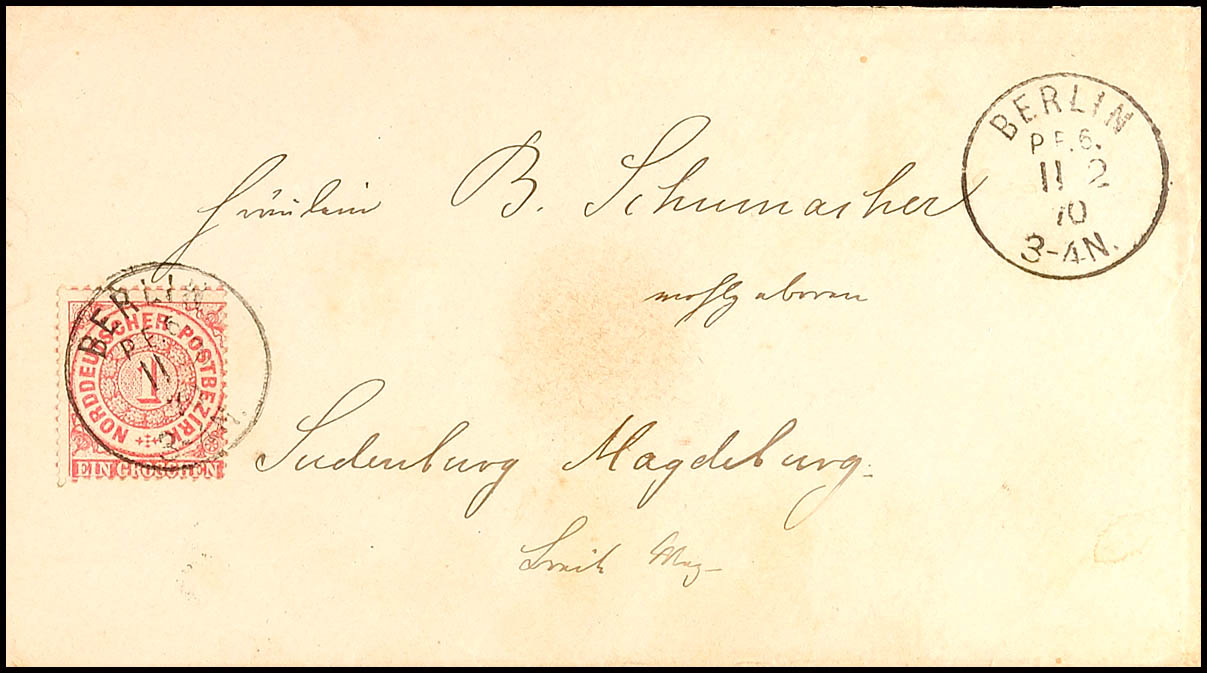 BERLIN
P.E.6.
11 2
70
3-4N.
Fräulein B. Schumacher
wohlgeboren
BERLIN
P.E.
11
NORDDEUTSCHER POSTBEZIRK
1
EIN GROSCHEN
Sudenburg Magdeburg.